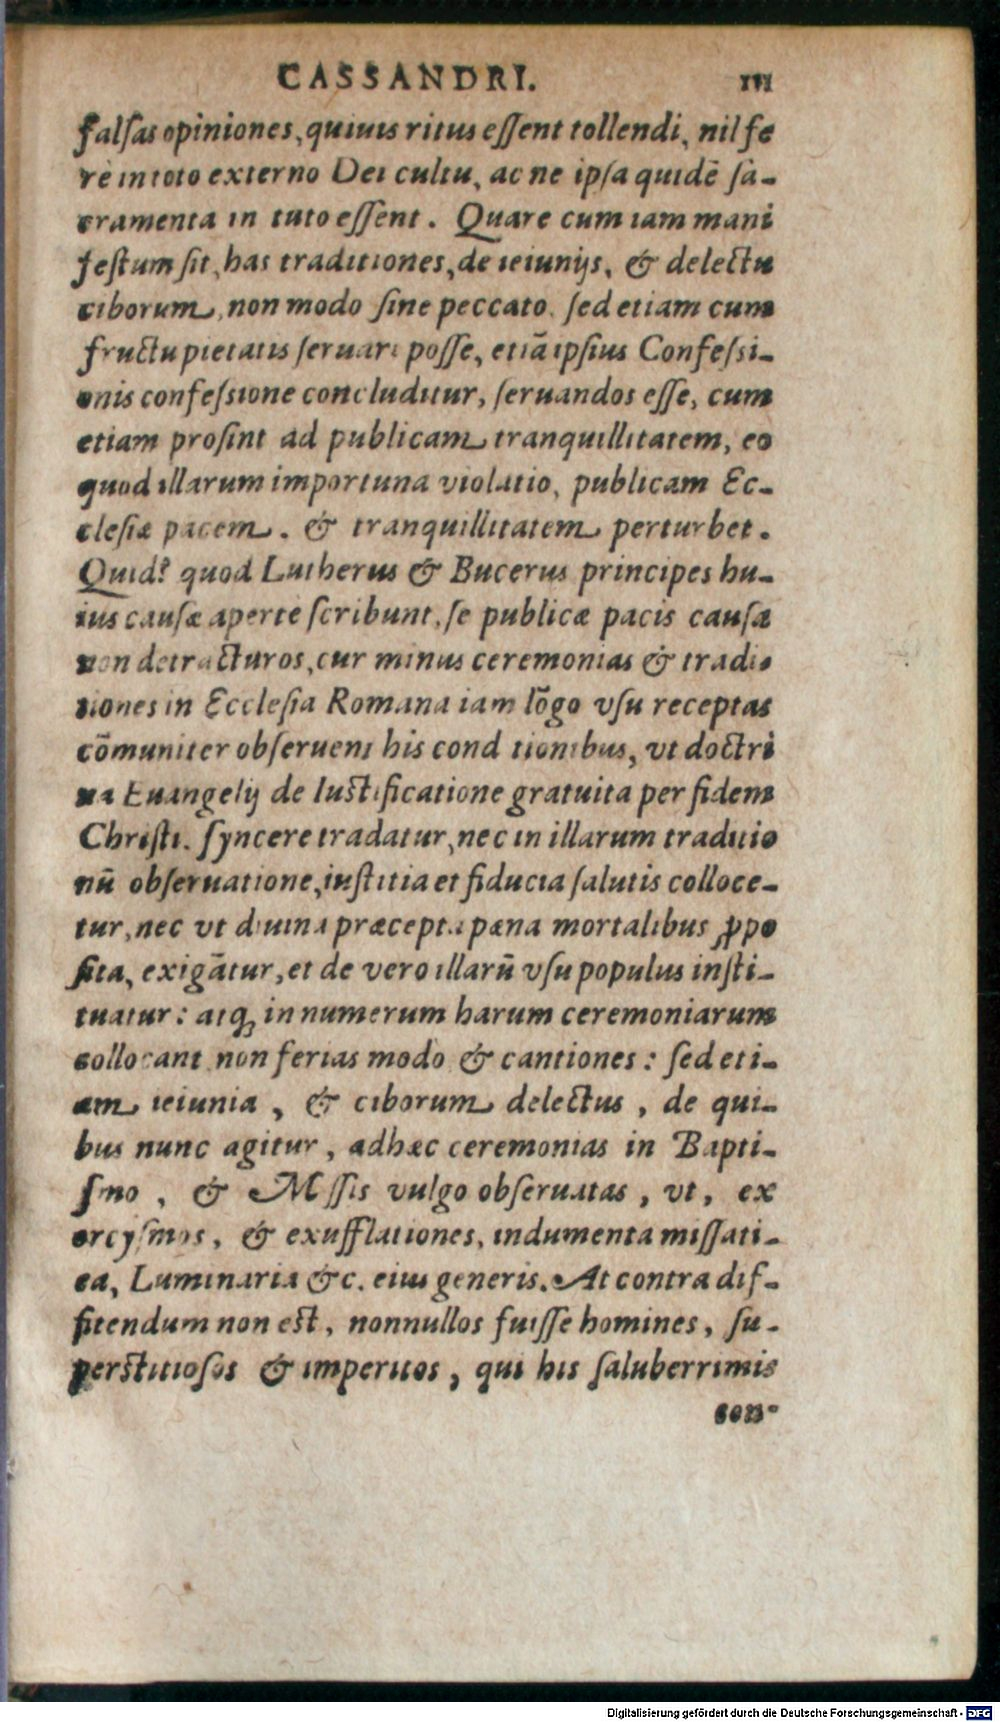 CASSANDRI. 111
falsas opiniones, quiuis ritus essent tollendi, nil fe
rè in toto externo Dei cultu, ac ne ipsa quidē sa-
cramenta in tuto essent. Quare cum iam mani
festum sit, has traditiones, de ieiunijs, & delectu
ciborum, non modo sine peccato. sed etiam cum
fructu pietatis seruari posse, etiā ipsius Confessi-
onis confessione concluditur, seruandos esse, cum
etiam prosint ad publicam tranquillitatem, eo
quod illarum importuna violatio, publicam Ec-
clesiæ pacem. & tranquillitatem perturbet.
Quid? quod Lutherus & Bucerus principes hu-
ius causæ aperte scribunt, se publicæ pacis causa
non detracturos, cur minus ceremonias & tradi-
tiones in Ecclesia Romana iam lōgo vsu receptas
cōmuniter obseruent his cond tionibus, vt doctri
na Euangelij de Iustificatione gratuita per fidem
Christi. syncere tradatur, nec in illarum traditio
nū obseruatione, iustitia et fiducia salutis colloce-
tur, nec vt diuina præcepta pæna mortalibus ꝓpo
sita, exigātur, et de vero illarū vsu populus insti-
tuatur: atq; in numerum harum ceremoniarum
collocant non ferias modo & cantiones: sed eti-
am ieiunia, & ciborum delectus, de qui-
bus nunc agitur, adhæc ceremonias in Bapti-
smo, & M ssis vulgo obseruatas, vt, ex
orcysmos, & exufflationes, indumenta missati-
ca, Luminaria &c. eius generis. At contra dif-
fitendum non est, nonnullos fuisse homines, su-
perstitiosos & imperitos, qui his saluberrimis
con-
Digitalisierung gefördert durch die Deutsche Forschungsgemeinschaft - DFG